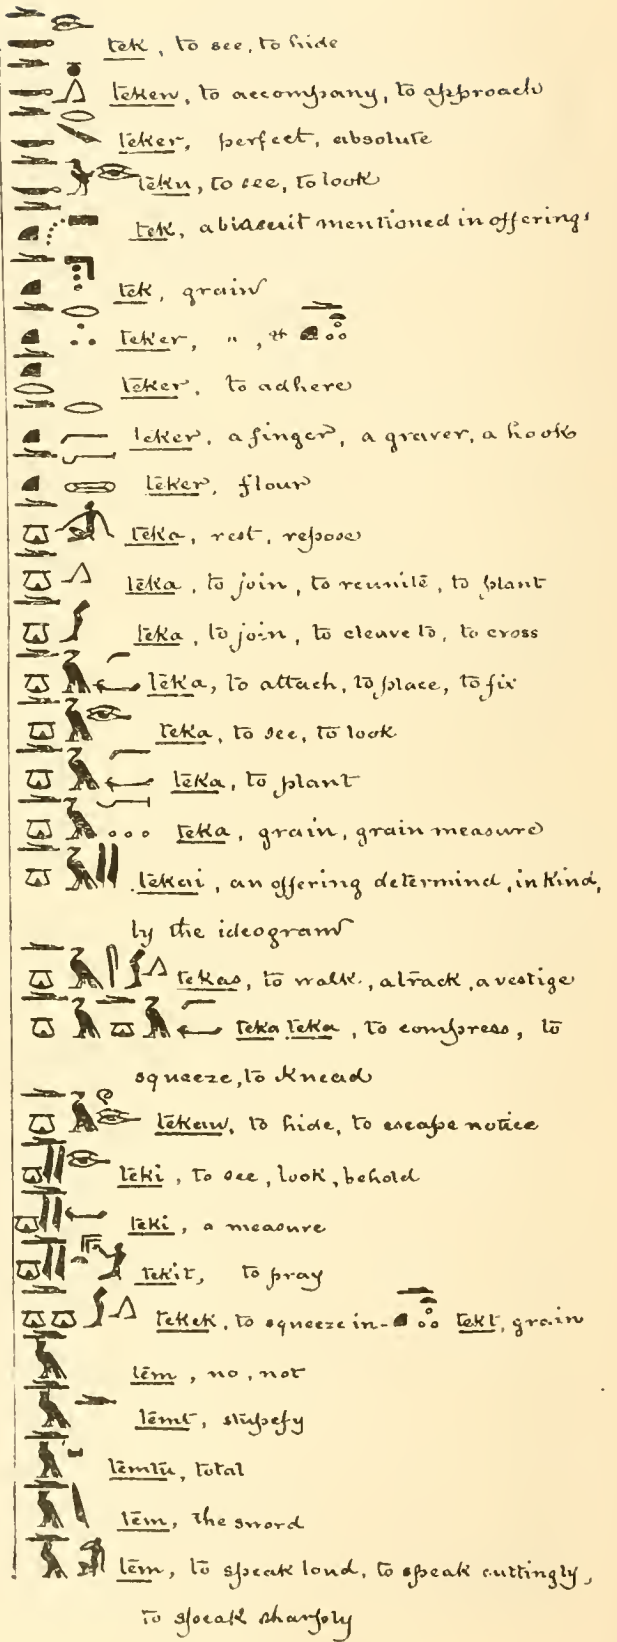 tek, to see, to hide
teken, to accompany, to approach
teker, perfect, absolute
teku, to see, to look
tek, a biscuit mentioned in offerings
tek, grain
teker, " , "
teker, to adhere
teker, a finger, a graver, a hook
teker, flour
teka, rest, repose
teka, to join, to reunite, to plant
teka, to join, to cleave to, to cross
teka, to attach, to place, to fix
teka, to see, to look
teka, to plant
teka, grain, grain measure
tekai, an offering determind, in kind,
by the ideogram
tekas, to walk, a track, a vestige
teka teka, to compress, to
squeeze, to knead
tekau, to hide, to escape notice
teki, to see, look, behold
teki, a measure
tekit, to pray
tekek, to squeeze in- tekt, grain
tēm, no, not
tēmt, stupefy
tēmtu, total
tēm, the sword
tēm, to speak loud, to speak cuttingly,
to speak sharply